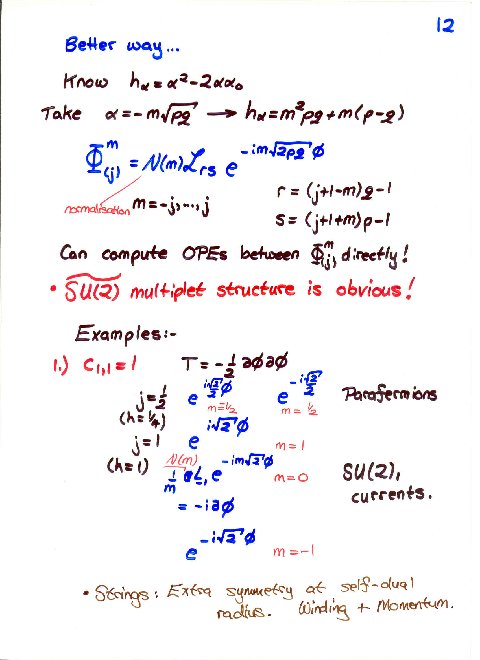 12
Better way...
Know hα = α² - 2αα₀
Take α = -m√pq → hα = m²pq + m(p-q)
Φ^m_(j) = N(m) 𝓛_rs e^{-im√2pq φ}
normalisation m = -j,...,j
r = (j+1-m)q-1
s = (j+1+m)p-1
Can compute OPEs between Φ^m_(j) directly!
• SU(2) multiplet structure is obvious!
Examples:-
1.) C₁,₁ = 1 T = -½ ∂φ∂φ
j = ½ e^{i√2/2 φ} e^{-i√2/2} Parafermions
(h = ¼) m = ½ m = ½
j = 1 e^{i√2 φ} m = 1
(h = 1) N(m)
1/m ∂L, e^{-im√2 φ} m = 0 SU(2),
= -i∂φ currents.
e^{-i√2 φ} m = -1
• Strings: Extra symmetry at self-dual
radius. Winding + Momentum.